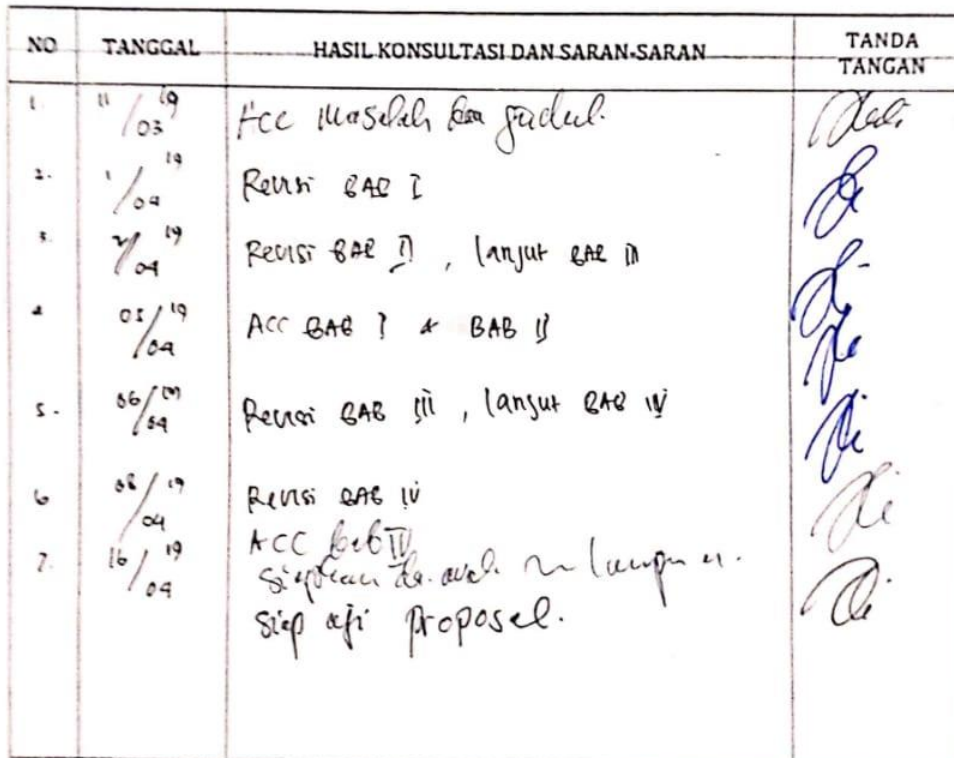 NO TANGGAL HASIL KONSULTASI DAN SARAN-SARAN TANDA TANGAN
1. 11/03 19 Acc Masalah dan judul.
2. 1/04 19 Revisi BAB I
3. 2/04 19 Revisi BAB II, lanjut BAB III
4 05/04 19 ACC BAB I & BAB II
5. 06/04 19 Revisi BAB III, lanjut BAB IV
6 08/04 19 Revisi BAB IV
7. 16/04 19 ACC bab IV
Siapkan
siap uji proposal.